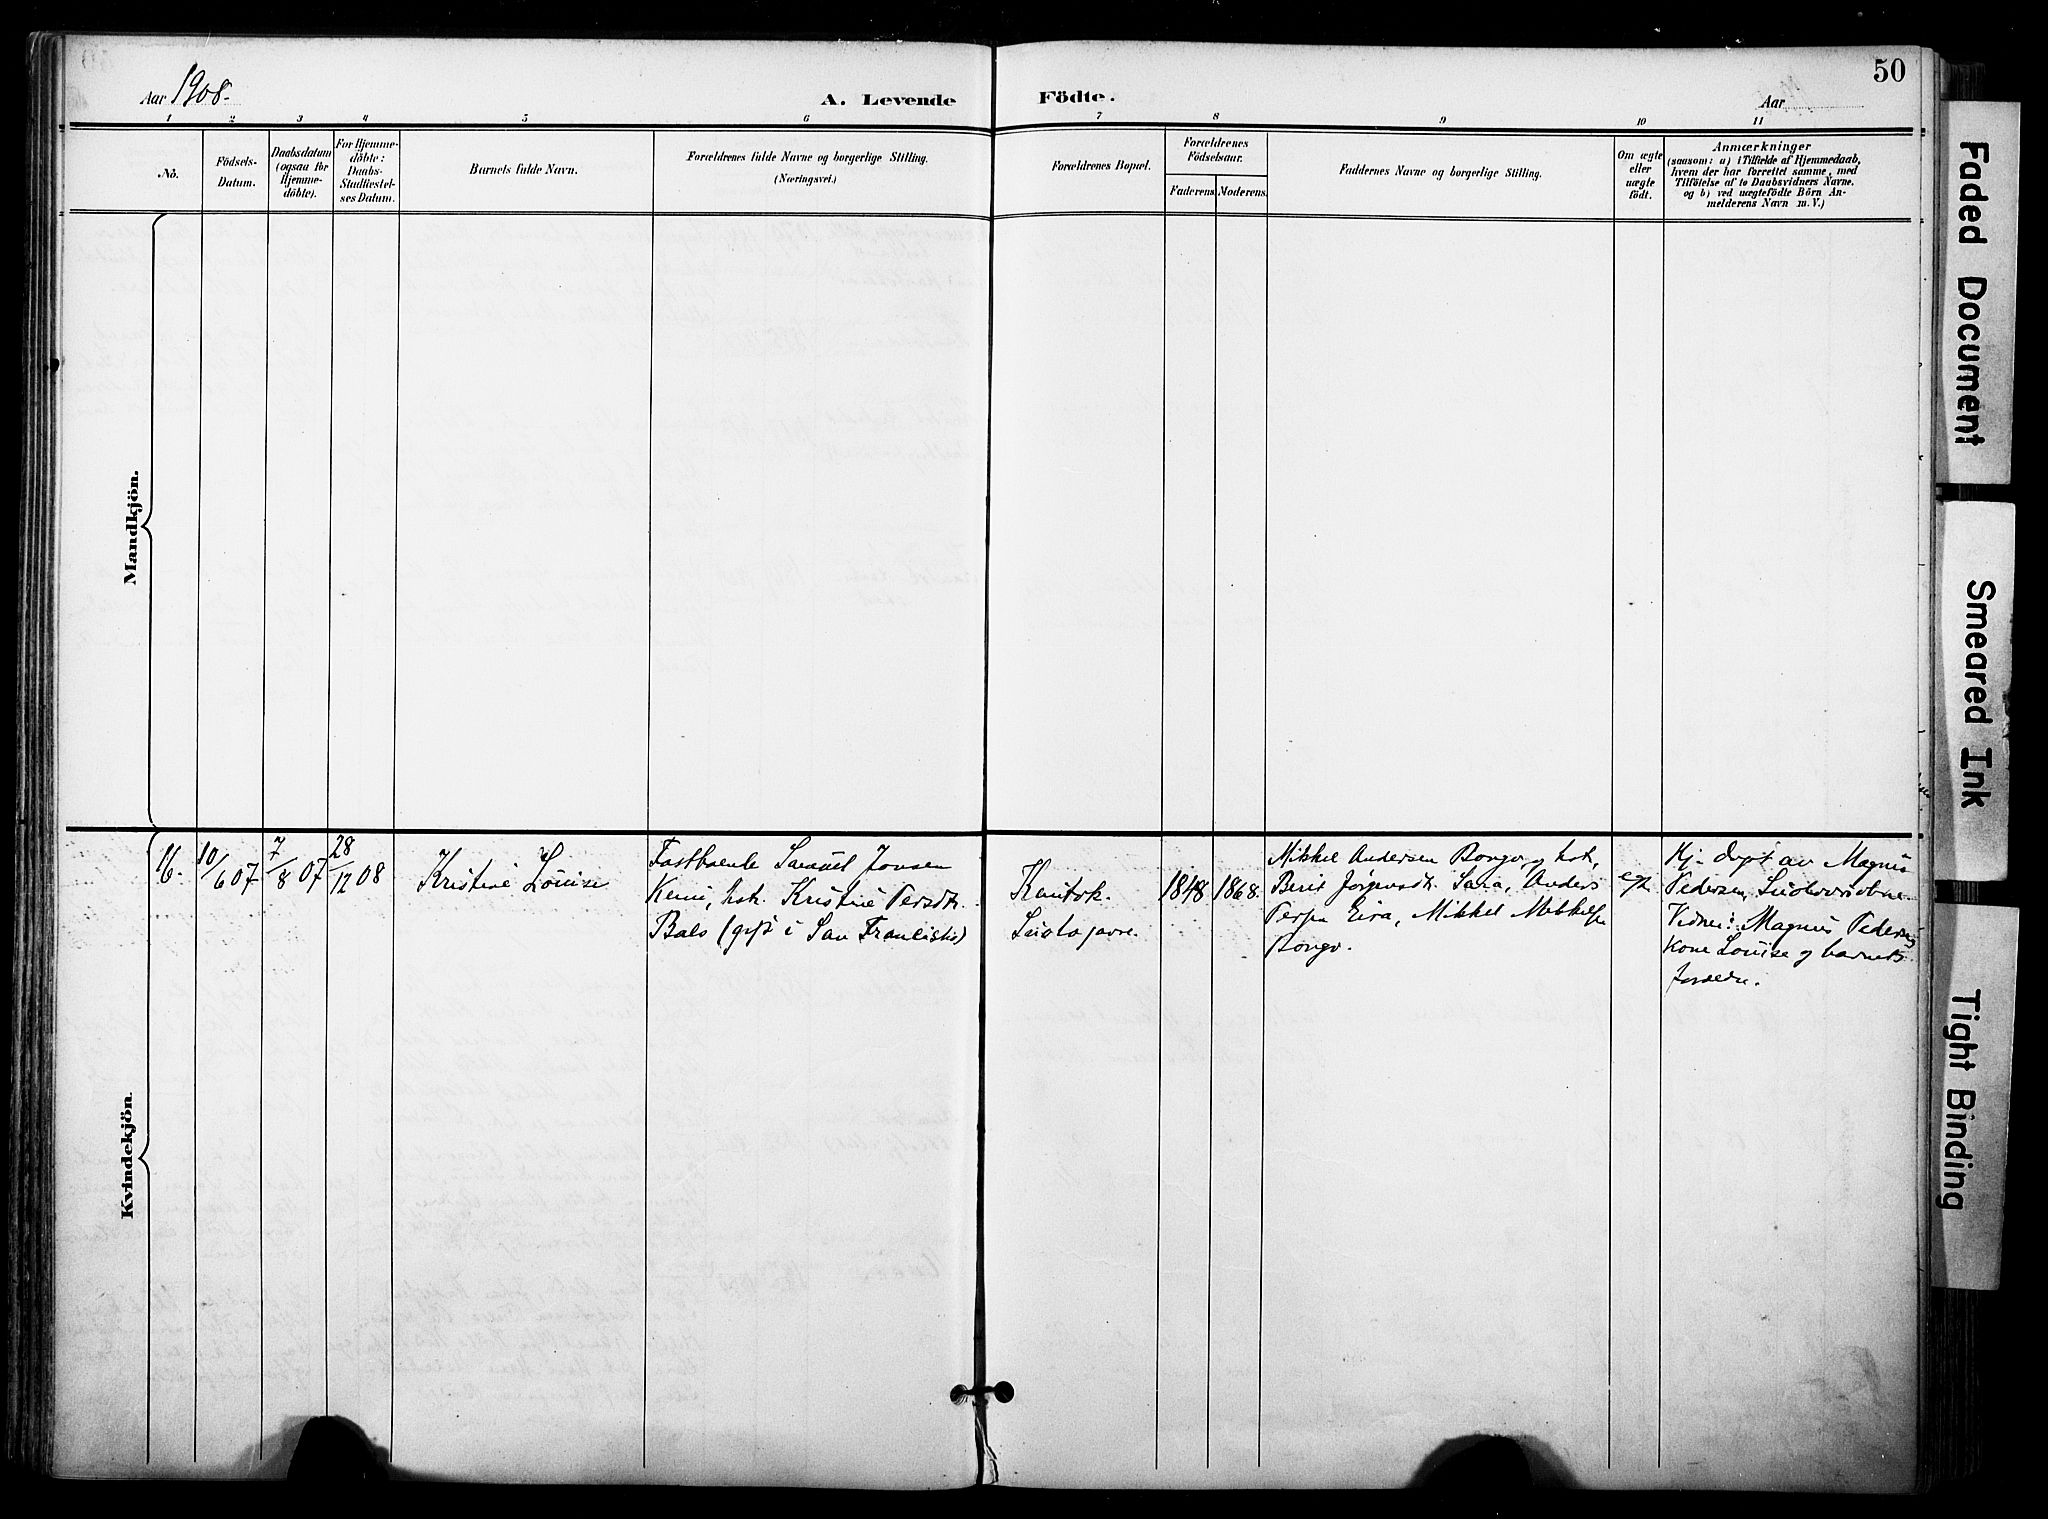 50
Aar 1908.
A. Levende
Födte.
Aar
1 2 3 4 5 6 7 8 9 10 11
No.
Födsels-
Datum.
Daabsdatum
(ogsaa for
Hjemme-
döbte).
For Hjemme-
döbte:
Daabs-
Stadfæstel-
ses Datum.
Barnets fulde Navn.
Forældrenes fulde Navne og borgerlige Stilling.
(Næringsvei.)
Forældrenes Bopæl.
Forældrenes
Födselsaar.
Faderens.
Moderens.
Faddernes Navne og borgerlige Stilling.
Om ægte
eller
uægte
födt.
Anmærkninger
(saasom: a) i Tilfælde af Hjemmedaab,
hvem der har forrettet samme, med
Tilföielse af to Daabsvidners Navne,
og b) ved uægtefödte Börn An-
melderens Navn m. V.)
Mandkjön.
Kvindekjön.
16.
10/6 07
7/8 07
28/12 08
Kristine Louise
Fastboende Samuel Jonsen
Kemi, hst. Kristine Persdtr.
Bals (gift i San Francisko)
Kautok.
Suolojavre.
1848
1868.
Mikkel Andersen Bongo og hst.
Berit Jörgensdtr. Sara, Anders
Persen Eira, Mikkel Mikkelsen
Bongo.
egte
Hj. døpt av Magnus
Pedersen,
Vidner: Magnus Pedersens
kone Louise og barnets
forældre.
Faded Document
Smeared Ink
Tight Binding